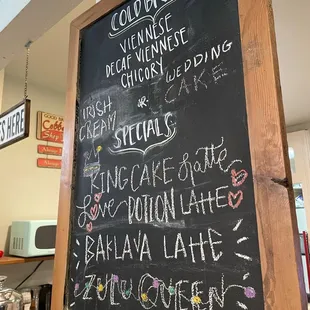 COLD BREW
VIENNESE
DECAF VIENNESE
CHICORY
WEDDING
CAKE
OR
IRISH
CREAM
SPECIALS
KING CAKE Latte
Love POTION LATTE
BAKLAVA LATTE
ZULU QUEEN
HERE
GOOD
Coffee